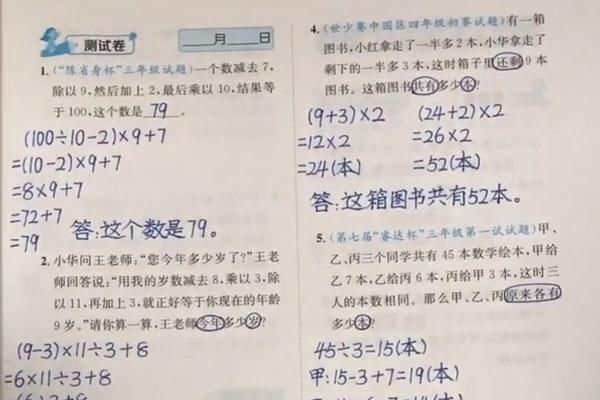 测试卷
月 日
1.(“陈省身杯”三年级试题)一个数减去7,
除以9,然后加上2,最后乘以10,结果等
于100,这个数是 79 。
(100÷10-2)×9+7
=(10-2)×9+7
=8×9+7
=72+7
=79
答:这个数是79。
2.小华问王老师:“您今年多少岁了?”王老
师回答说:“用我的岁数减去8,乘以3,除
以11,再加上3,就正好等于你现在的年龄
9岁。”请你算一算,王老师今年多少岁?
(9-3)×11÷3+8
=6×11÷3+8
4.(世少赛中国区四年级初赛试题)有一箱
图书,小红拿走了一半多2本,小华拿走了
剩下的一半多3本,这时箱子里还剩9本
图书。这箱图书共有多少本?
(9+3)×2
=12×2
=24(本)
(24+2)×2
=26×2
=52(本)
答:这箱图书共有52本。
5.(第七届“睿达杯”三年级第一试试题)甲、
乙、丙三个同学共有45本数学绘本,甲给
乙7本,乙给丙6本,丙给甲3本,这时三
人的本数相同。那么甲、乙、丙原来各有
多少本?
45÷3=15(本)
甲:15-3+7=19(本)